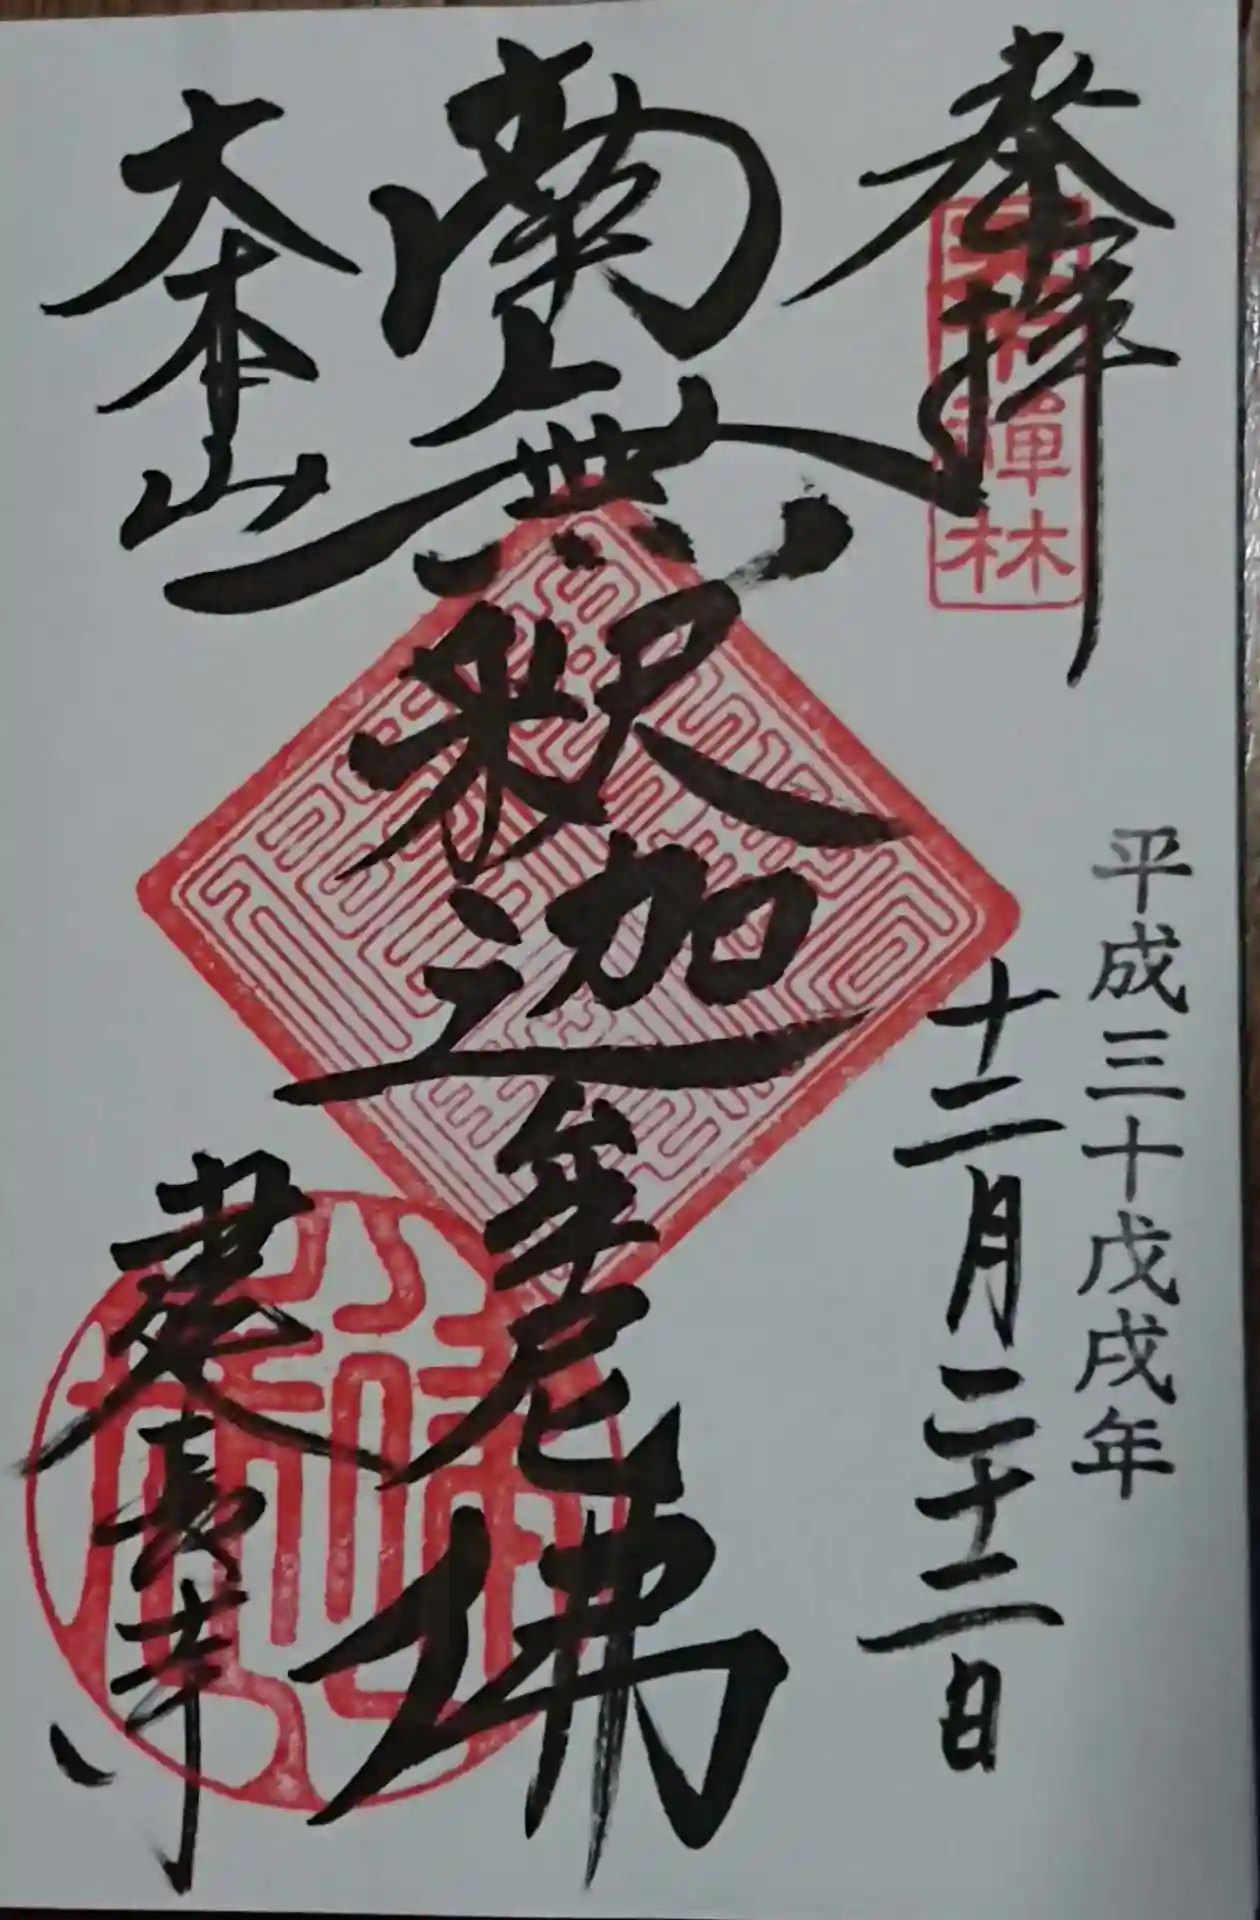 奉拝
禅林
平成三十戊戌年
十二月二十二日
南無釈迦牟尼佛
大本山
建長寺